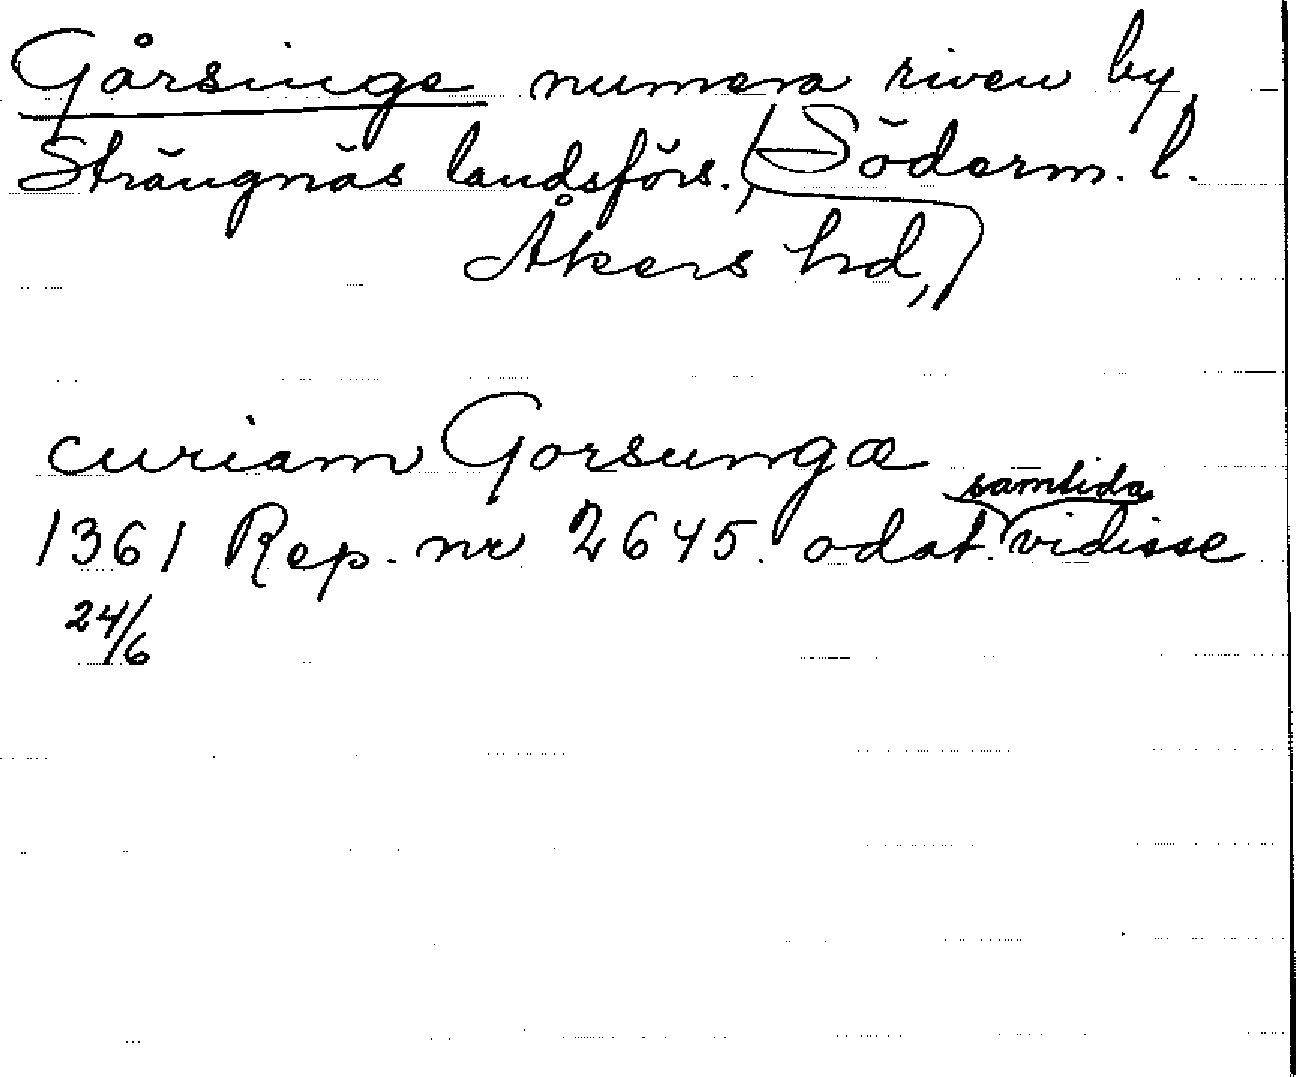 Gårsinge numera riven by,
Strängnäs landsförs., Söderm. l.
Åkers hd,
curiam Gorsungæ
samtida
1361 Rep. nr 2645. odat. vidisse
24/6